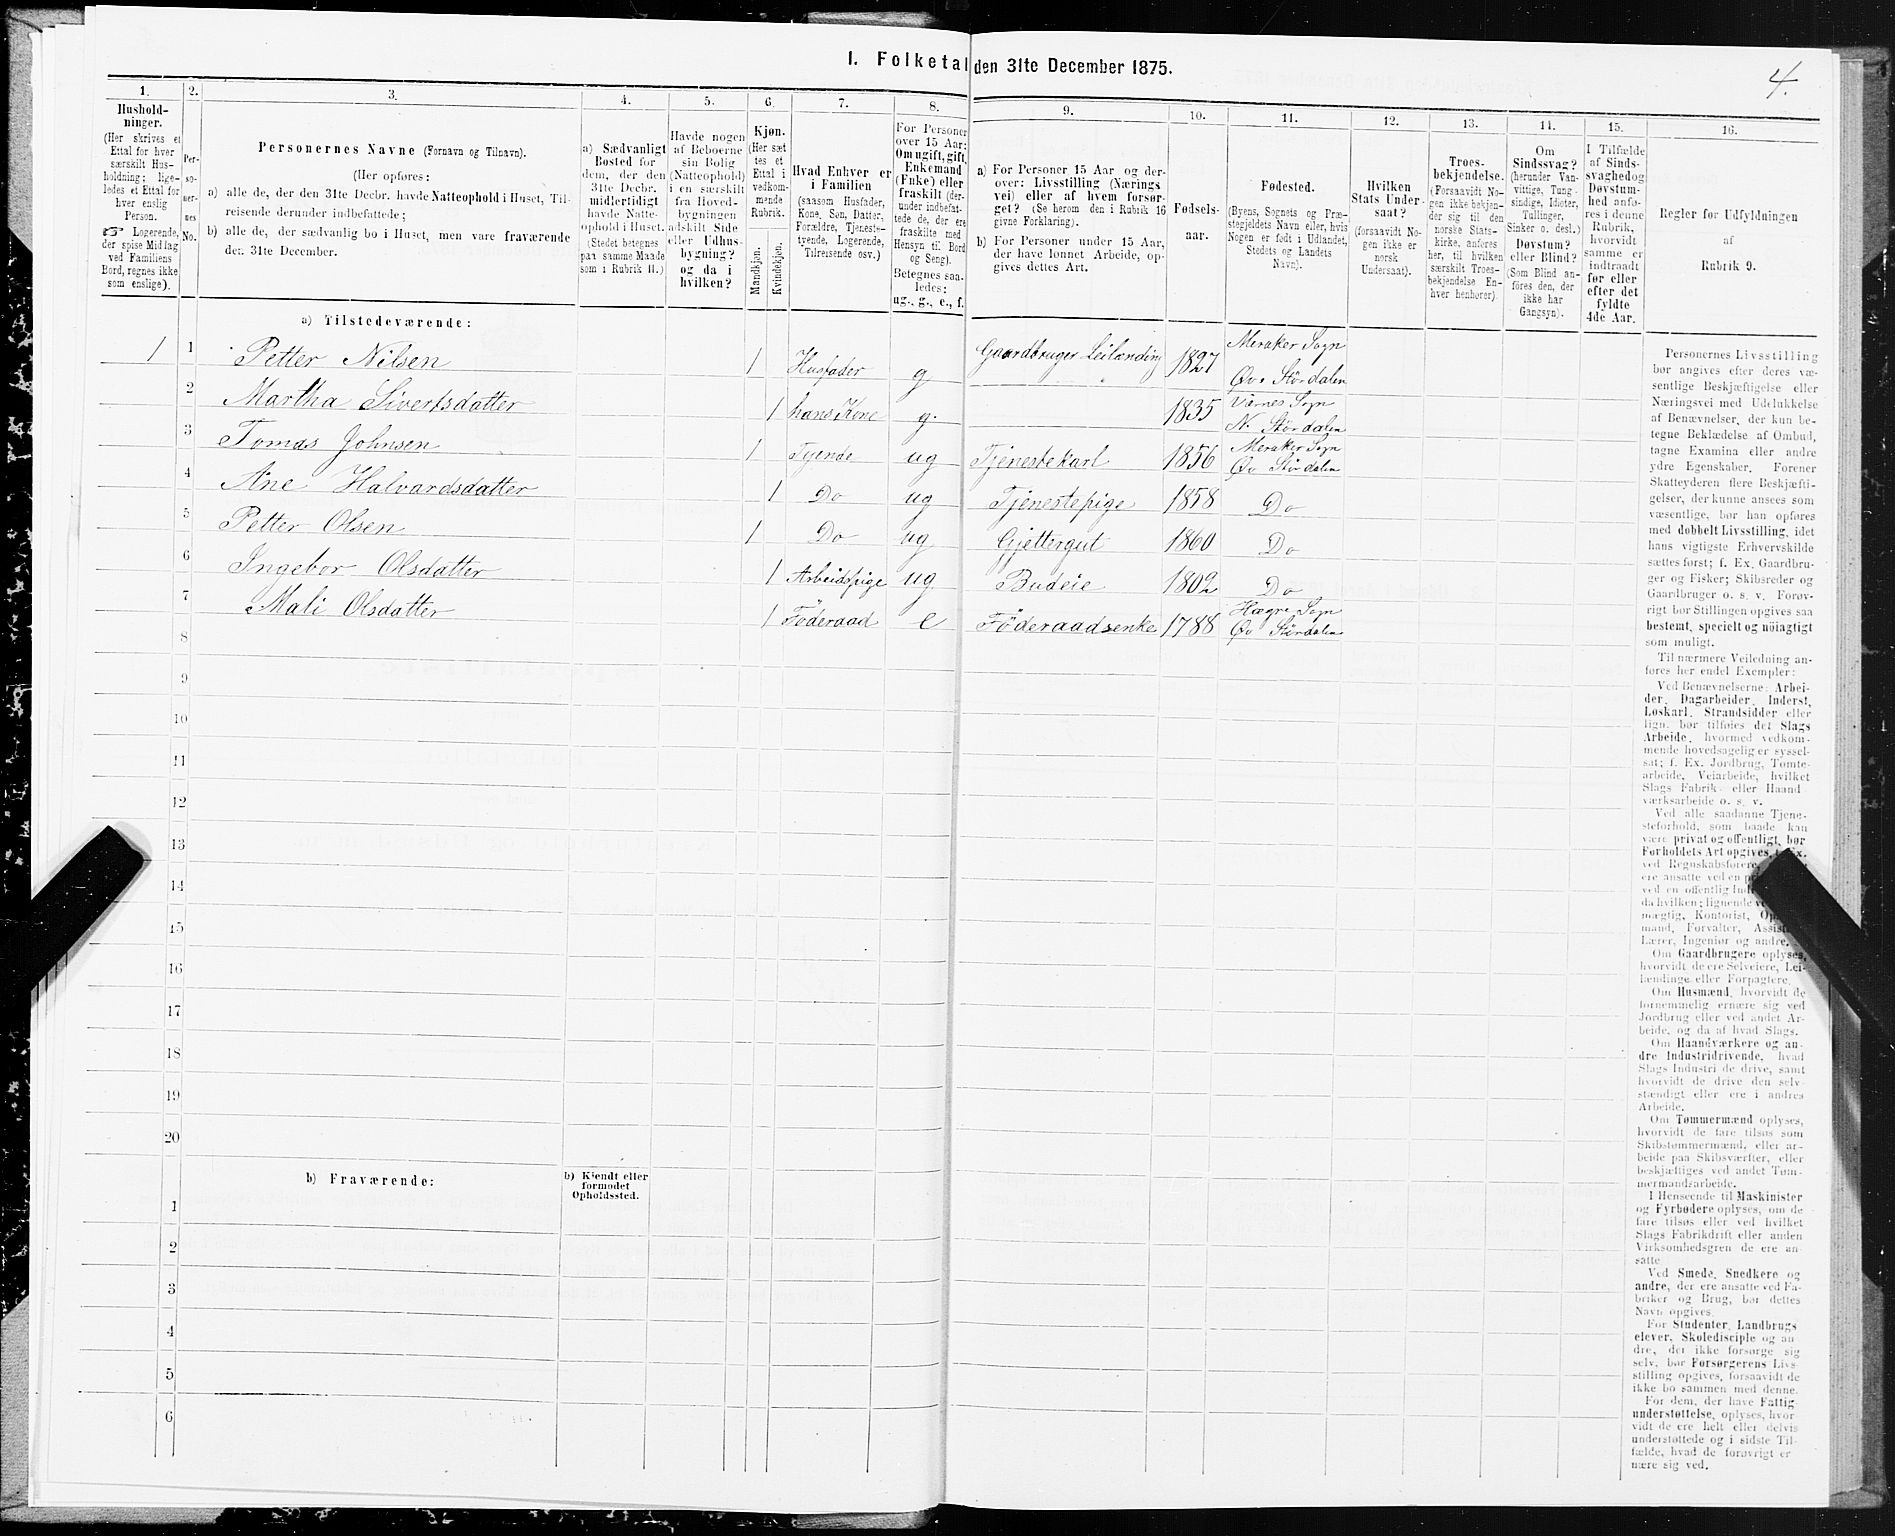 I. Folketal den 31te December 1875.
4.
1.
Hushold-
ninger.
(Her skrives et
Ettal for hver
særskilt Hus-
holdning; lige-
ledes et Ettal for
hver enslig
Person.
☞ Logerende,
der spise Middag
ved Familiens
Bord, regnes ikke
som enslige).
2.
Per-
so-
ner-
nes
No.
3.
Personernes Navne (Fornavn og Tilnavn).
(Her opføres:
a) alle de, der den 31te Decbr. havde Natteophold i Huset, Til-
reisende derunder indbefattede;
b) alle de, der sædvanlig bo i Huset, men vare fraværende
den 31te December.
4.
a) Sædvanligt
Bosted for
dem, der den
31te Decbr.
midlertidigt
havde Natte-
ophold i Huset.
(Stedet betegnes
paa samme Maade
som i Rubrik 11.)
5.
Havde nogen
af Beboerne
sin Bolig
(Natteophold)
i en særskilt
fra Hoved-
bygningen
adskilt Side
eller Udhus-
bygning?
og da i
hvilken?
6.
Kjøn.
(Her sæt
tes et
Ettal i
vedkom-
mende
Rubrik.
Mandkjøn.
Kvindekjøn.
7.
Hvad Enhver er
i Familien
(saasom Husfader,
Kone, Søn, Datter,
Forældre, Tjeneste-
tyende, Logerende,
Tilreisende osv.)
8.
For Personer
over 15 Aar:
Om ugift, gift,
Enkemand
(Enke) eller
fraskilt (der-
under indbefat-
tede de, der ere
fraskilte med
Hensyn til Bord
og Seng).
Betegnes saa-
ledes:
ug., g., e., f.
9.
a) For Personer 15 Aar og der-
over: Livsstilling (Nærings
vei) eller af hvem forsør-
get? (Se herom den i Rubrik 16
givne Forklaring).
b) For Personer under 15 Aar,
der have lønnet Arbeide, op-
gives dettes Art.
10.
Fødsels-
aar.
11.
Fødested.
(Byens, Sognets og Præ-
stegjeldets Navn eller, hvis
Nogen er født i Udlandet,
Stedets og Landets
Navn).
12.
Hvilken
Stats Under-
saat?
(forsaavidt No-
gen ikke er
norsk
Undersaat).
13.
Troes-
bekjendelse.
(Forsaavidt No-
gen ikke bekjen-
der sig til den
norske Stats-
kirke, anføres
her, til hvilken
særskilt Troes-
bekjendelse En-
hver henhører).
14.
Om
Sindssvag?
(herunder Van-
vittige, Tung-
sindige, Idioter,
Tullinger,
Sinker o. desl.)
Døvstum?
eller Blind?
(Som Blind an-
føres den, der
ikke har
Gangsyn).
15.
I Tilfælde
af Sinds-
svaghed og
Døvstum-
hed anfø-
res i denne
Rubrik,
hvorvidt
samme er
indtraadt
før eller
efter det
fyldte
4de Aar.
16.
Regler for Udfyldningen
af
Rubrik 9.
a) Tilstedeværende:
1 1 Petter Nilsen 1 Husfader g Gaardbruger Leilænding 1827 Meraker Sogn Øv. Stördalen
2 Martha Sivertsdatter 1 hans Kone g. 1835 Værnes Sogn N. Stördalen
3 Tomas Johnsen 1 Tyende ug Tjenestekarl 1856 Meraker Sogn Øv Stördalen
4 Ane Halvardsdatter 1 Do ug Tjenestepige 1858 Do
5 Petter Olsen 1 Do ug Gjettergut 1860 Do
6 Ingebor Olsdatter 1 Arbeidspige ug. Budeie 1802 Do
7 Mali Olsdatter 1 Föderaad e Föderaadsenke 1788 Hægre Sogn Øv Stördalen
8
9
10
11
12
13
14
15
16
17
18
19
20
b) Fraværende:
b) Kjendt eller
formodet
Opholdssted.
1
2
3
4
5
6
Personernes Livsstilling
bør angives efter deres væ-
sentlige Beskjæftigelse eller
Næringsvei med Udelukkelse
af Benævnelser, der kun be-
tegne Beklædelse af Ombud,
tagne Examina eller andre
ydre Egenskaber. Forener
Skatteyderen flere Beskjæfti-
gelser, der kunne ansees som
væsentlige, bør han opføres
med dobbelt Livsstilling, idet
hans vigtigste Erhvervskilde
sættes først; f. Ex. Gaardbru-
ger og Fisker; Skibsreder og
Gaardbruger o. s. v. Forøv-
rigt bør Stillingen opgives saa
bestemt, specielt og nöiagtigt
som muligt.
Til nærmere Veiledning an-
føres her endel Exempler:
Ved Benævnelserne: Arbei-
der, Dagarbeider, Inderst,
Løskarl, Strandsidder eller
lign. bør tilføies det Slags
Arbeide, hvormed vedkom-
mende hovedsagelig er syssel-
sat; f. Ex. Jordbrug, Tomte-
arbeide, Veiarbeide, hvilket
Slags Fabrik- eller Haand-
værksarbeide o. s. v.
Ved alle saadanne Tjene-
steforhold, som baade kan
være privat og offentligt, bør
Forholdets Art opgives, f. Ex.
ved Regnskabsførere,
ere ansatte ved en
ved en offentlig
da hvilken; lignende
mægtig, Kontorist,
mand, Forvalter,
Lærer, Ingeniør og andre.
Om Gaardbrugere oplyses,
hvorvidt de ere Selveiere, Lei-
lændinge eller Forpagtere.
Om Husmænd, hvorvidt de
fornemmelig ernære sig ved
Jordbrug eller ved andet Ar-
beide, og da af hvad Slags.
Om Haandværkere og an-
dre Industridrivende, hvad
Slags Industri de drive, samt
hvorvidt de drive den selv-
stændigt eller ere i andres
Arbeide.
Om Tømmermænd oplyses,
hvorvidt de fare tilsøs som
Skibstømmermænd, eller ar-
beide paa Skibsværfter, eller
beskjæftiges ved andet Tøm-
mermandsarbeide.
I Henseende til Maskinister
og Fyrbødere oplyses, om de
fare tilsøs eller ved hvilket
Slags Fabrikdrift eller anden
Virksomhedsgren de ere an-
satte.
Ved Smede, Snedkere og
andre, der ere ansatte ved Fa-
briker og Brug, bør dettes
Navn opgives.
For Studenter, Landbrugs
elever, Skoledisciple og an-
dre, der ikke forsørge sig
selv, bør Forsørgerens Livs-
stilling opgives, forsaavidt de
ikke bo sammen med denne.
For dem, der have Fattig-
understøttelse, oplyses, hvor-
vidt de ere helt eller delvis
understøttede og i sidste Til-
fælde, hvad de forøvrigt er-
nære sig ved.